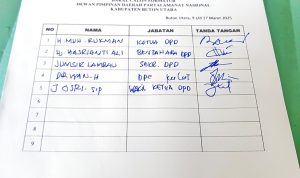 DEWAN PIMPINAN DAERAH PARTAI AMANAT NASIONAL
KABUPATEN BUTON UTARA
Buton Utara, 27 Maret 2025
NO NAMA JABATAN TANDA TANGAN
1 H MUH. RUKMAN KETUA DPD
2 Hj HASRIANTI ALI BENDAHARA DPD
3 JUMSIR LAMBAU SEKR. DPD
4 DARWAN. H DPC
5 J OSRI. SIP WAKIL KETUA DPD
6
7
8
9